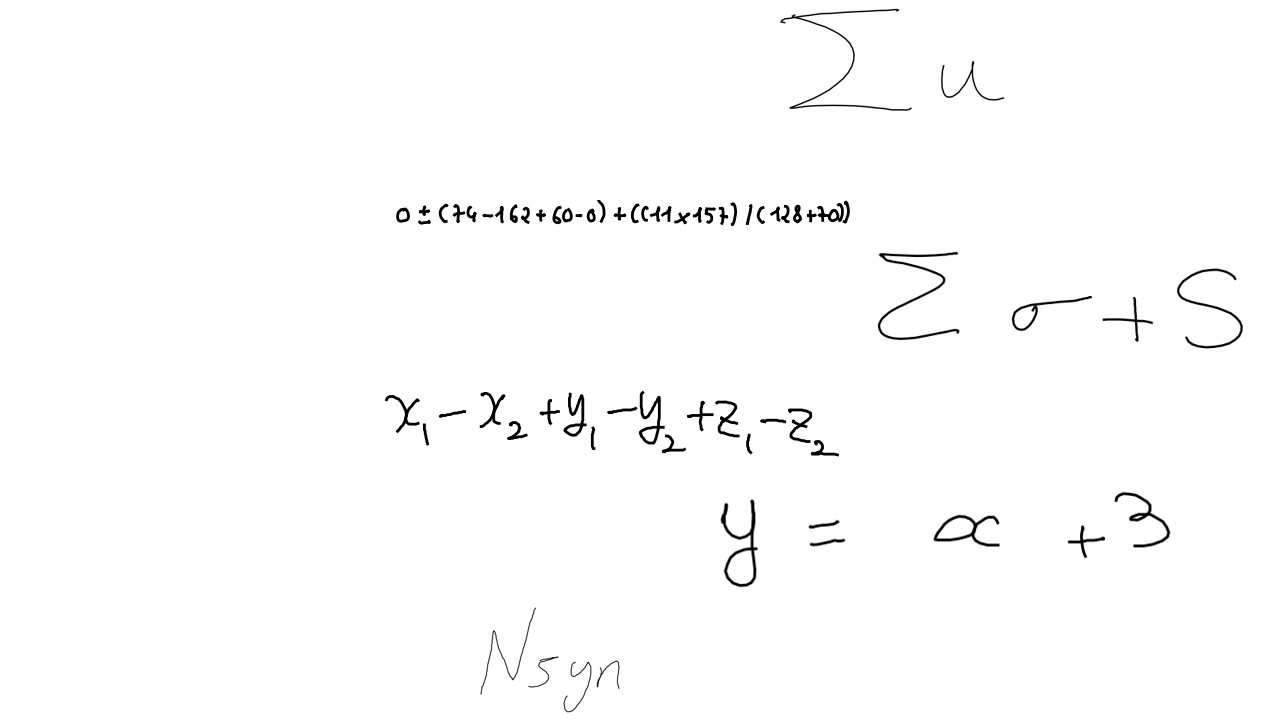 ∑ u
0 ± (74-162+60-0) + ((11×157) / (128+70))
∑ σ + S
x₁ - x₂ + y₁ - y₂ + z₁ - z₂
y = α + 3
Nsyn